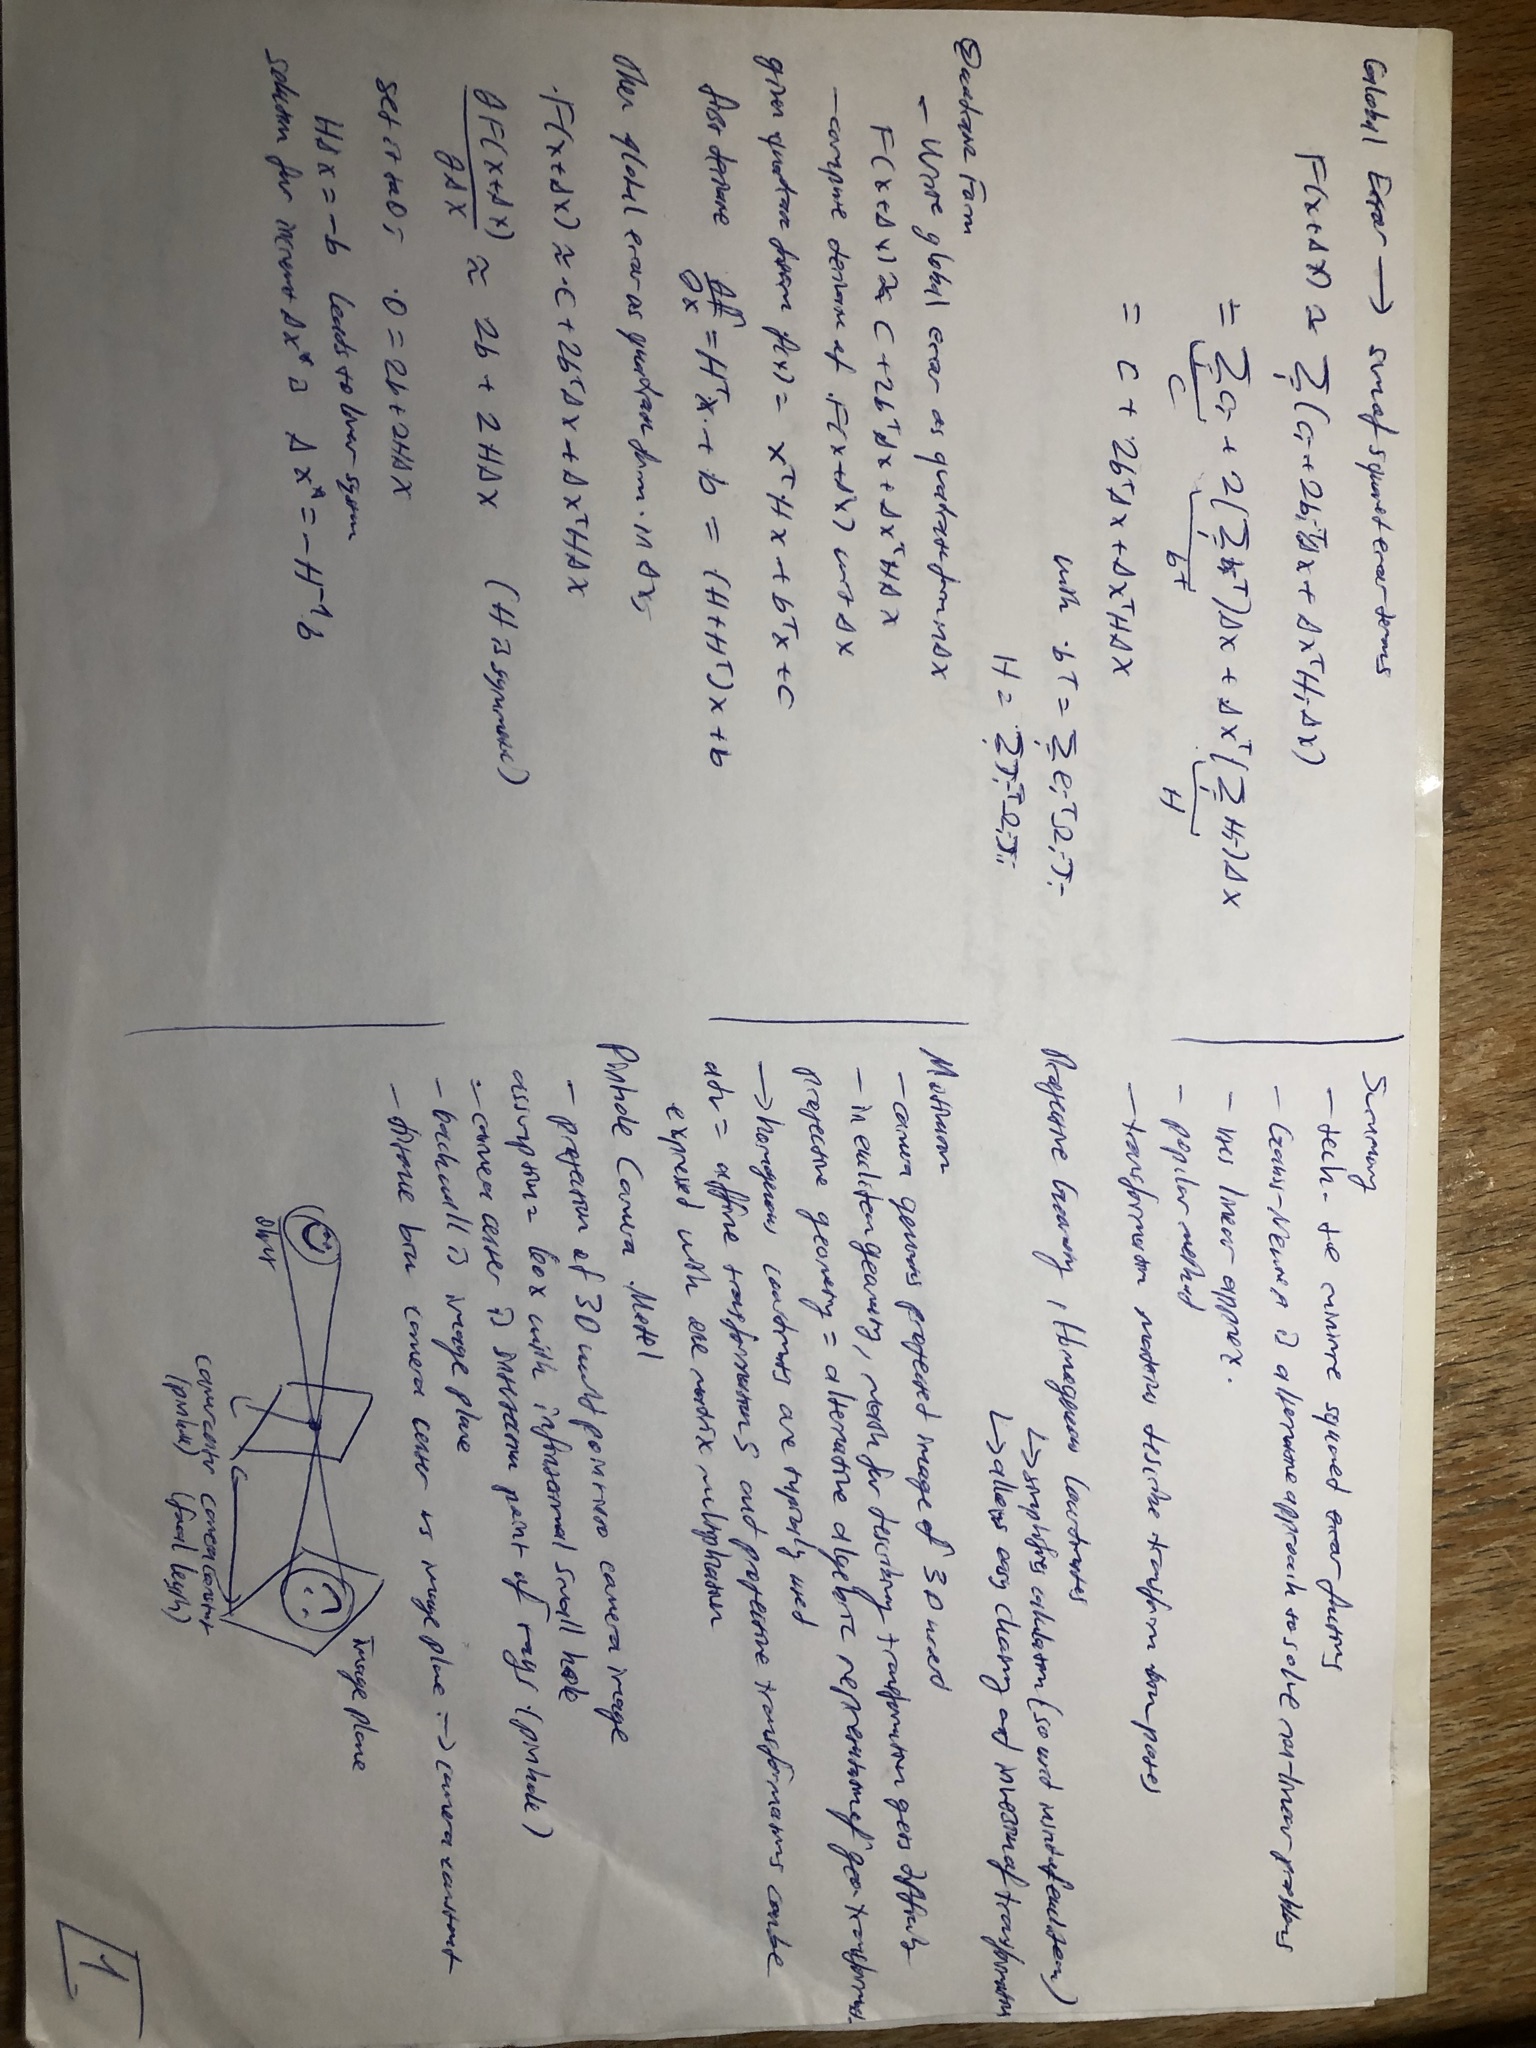 Global Error → sum of squared error terms
F(x+Δx) ≈ Σ_i (c_i + 2b_i^T Δx + Δx^T H_i Δx)
= Σ_i c_i + 2(Σ_i b_i^T)Δx + Δx^T(Σ_i H_i)Δx
c b^T H
= c + 2b^T Δx + Δx^T H Δx
with b^T = Σ_i e_i^T Ω_i J_i
H = Σ_i J_i^T Ω_i J_i
Quadratic Form
- Write global error as quadratic form in Δx
F(x+Δx) ≈ c + 2b^T Δx + Δx^T H Δx
- compute derivative of F(x+Δx) wrt Δx
given quadratic form f(x) = x^T H x + b^T x + c
first derivative ∂f/∂x = H^T x + b = (H+H^T)x + b
then global error as quadratic form in Δx:
F(x+Δx) ≈ c + 2b^T Δx + Δx^T H Δx
∂F(x+Δx)/∂Δx ≈ 2b + 2HΔx (H is symmetric)
set it to 0: 0 = 2b + 2HΔx
HΔx = -b leads to linear system
solution for increment Δx* is Δx* = -H^-1 b
Summary
- tech. to minimize squared error functions
- Gauss-Newton is alternative approach to solve non-linear problems
- uses linear approx.
- popular method
- transformation matrices describe transform btwn poses
Projective Geometry, Homogenous Coordinates
↳ simplifies calculation (so used instead of euclidean)
↳ allows easy chaining and inversion of transformation
Motivation
- camera generates projected image of 3D world
- in euclidean geometry, math for describing transformation gets difficult
projective geometry = alternative algebraic representation of geo. transforma.
→ homogenous coordinates are typically used
adv = affine transformations and projective transformations can be
expressed with one matrix multiplication
Pinhole Camera Model
- projection of 3D world point into camera image
assumption = box with infinitesimal small hole
- camera center is intersection point of rays (pinhole)
- back wall is image plane
- distance btw camera center us image plane => camera constant
object
image plane
camera center camera constant
(pinhole) (focal length)
1